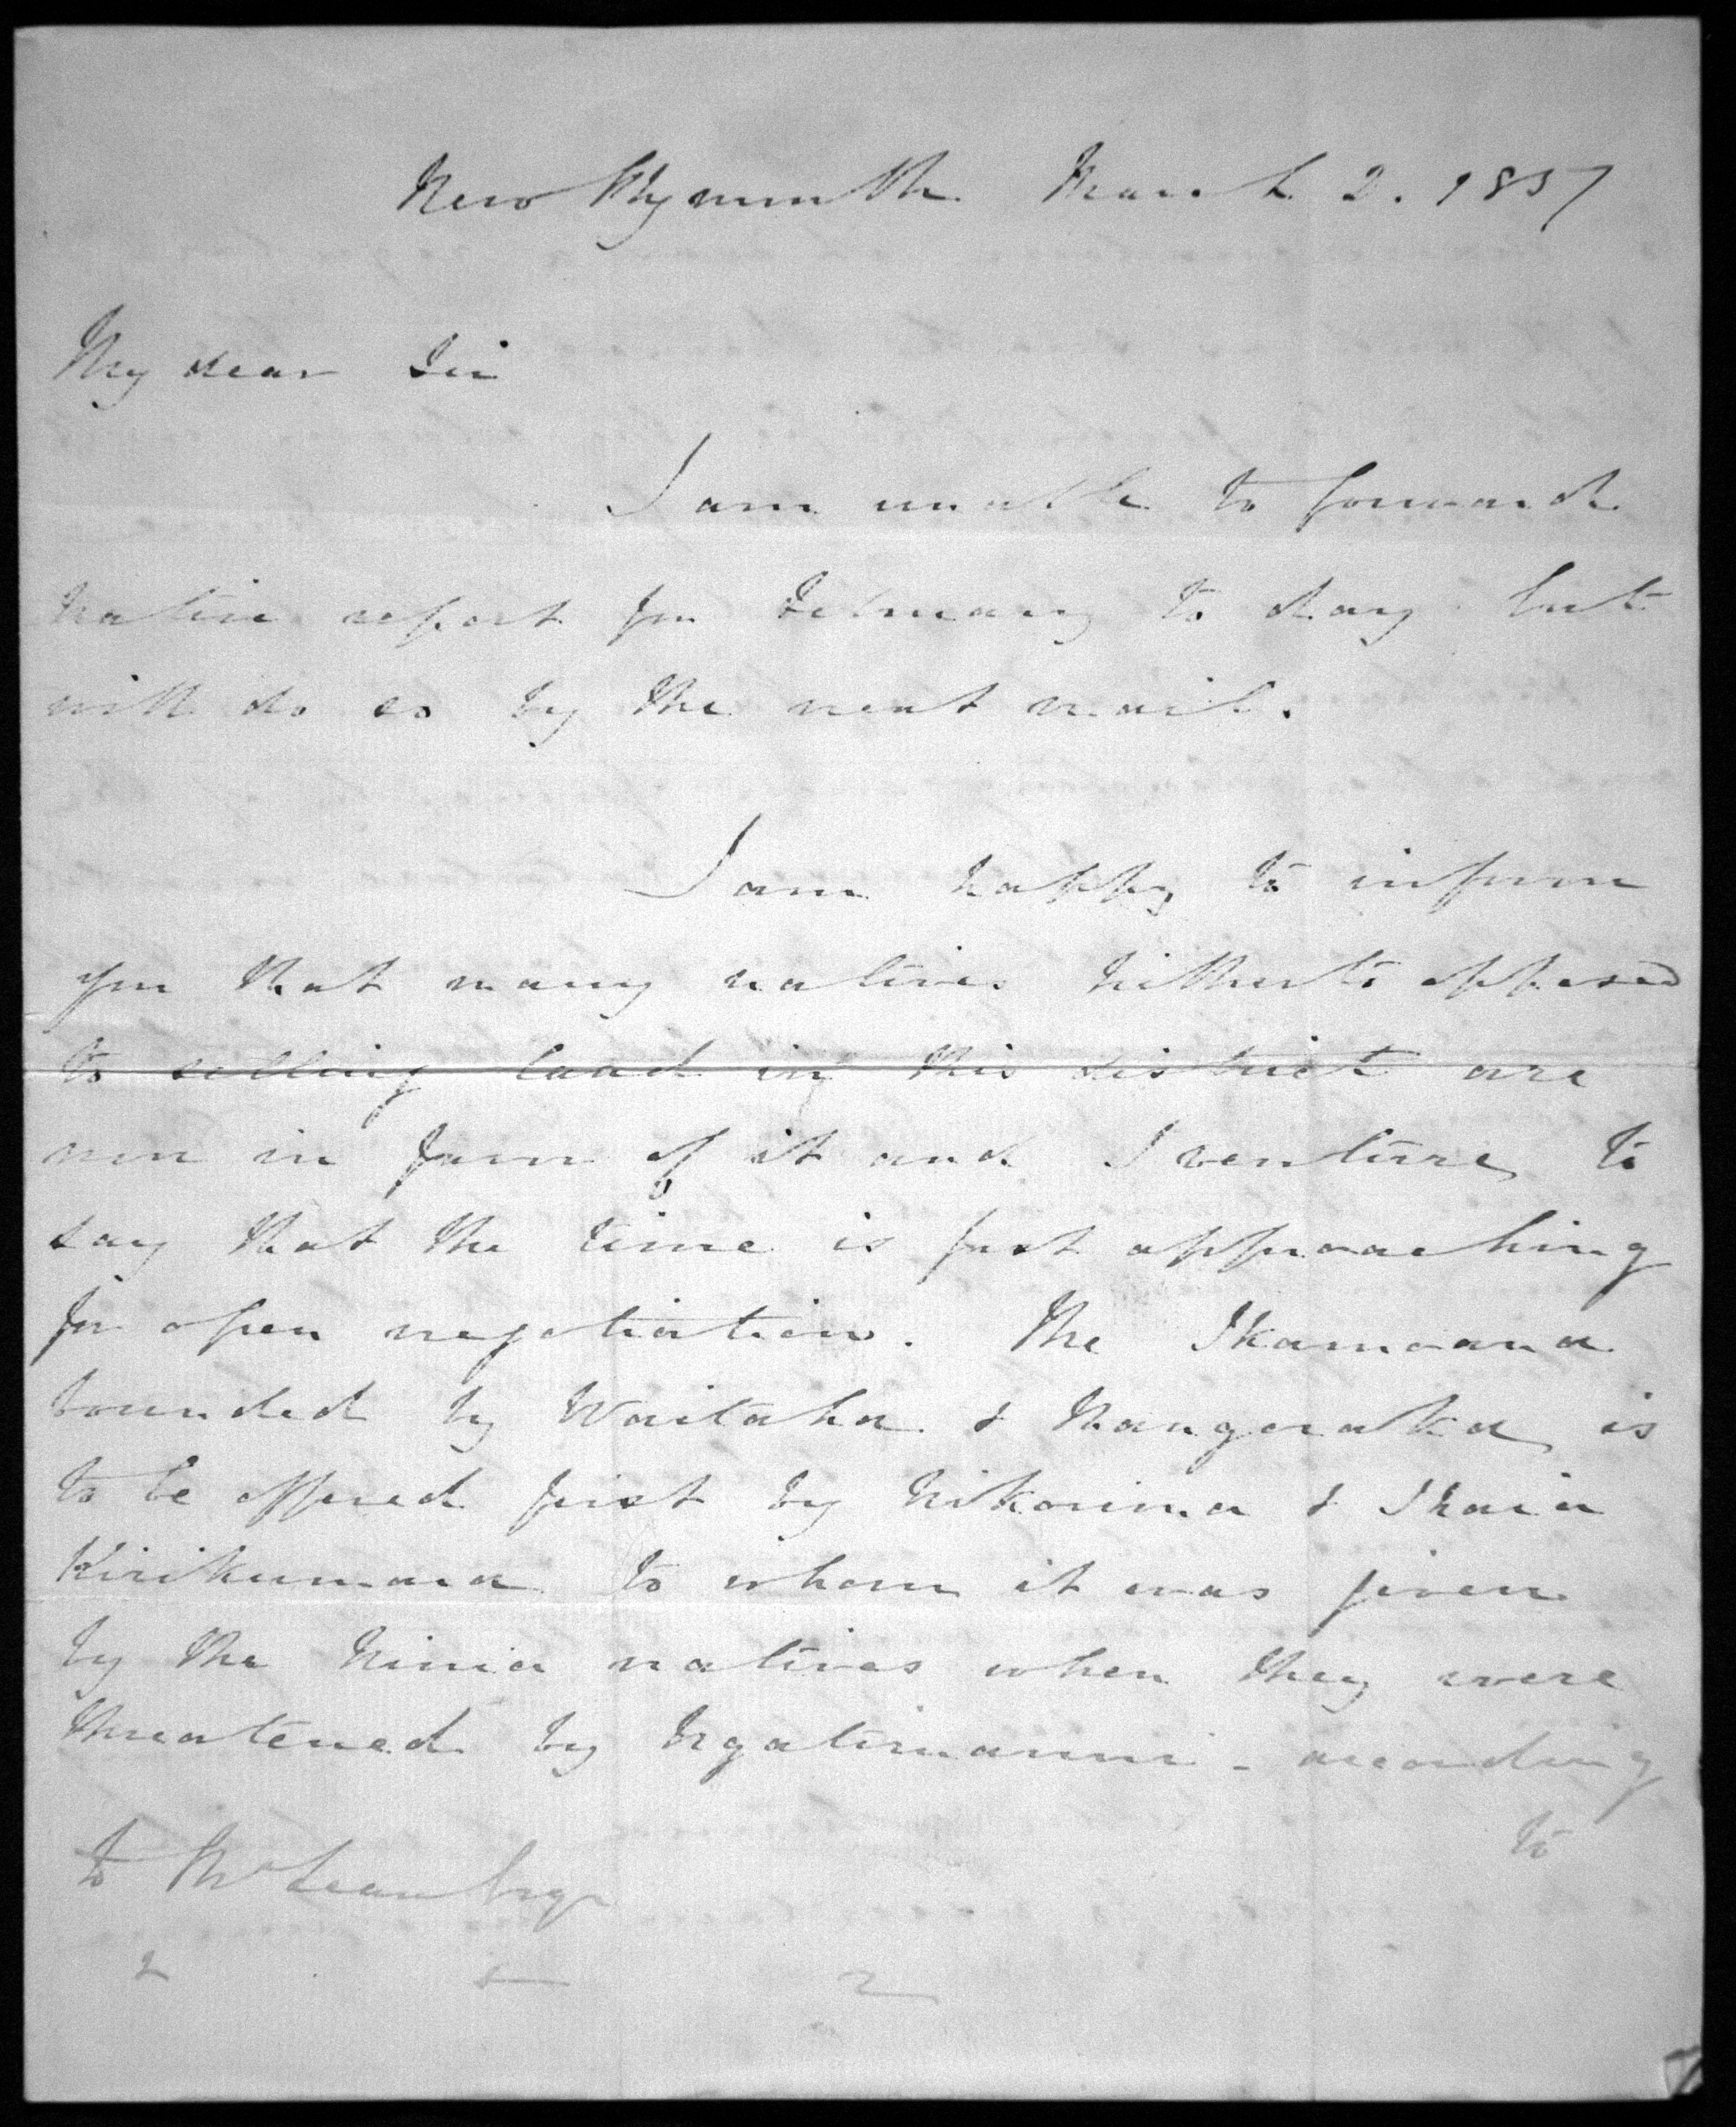 New Plymouth March 2. 1857
My dear Sir
I am unable to forward
native report for February to day but
will do so by the next mail.
I am happy to inform
you that many natives hitherto opposed
to selling land in this district are
now in favor of it and I venture to
say that the time is fast approaching
for open negotiation. The Ikamoana
bounded by Waitaha & Mangoraka is
to be offered first by Nikorima & Ihaia
Kirikumara to whom it was given
by the Ninia natives when they were
threatened by Ngatimaniu - according
to
to McLean Esqr
2 5 2